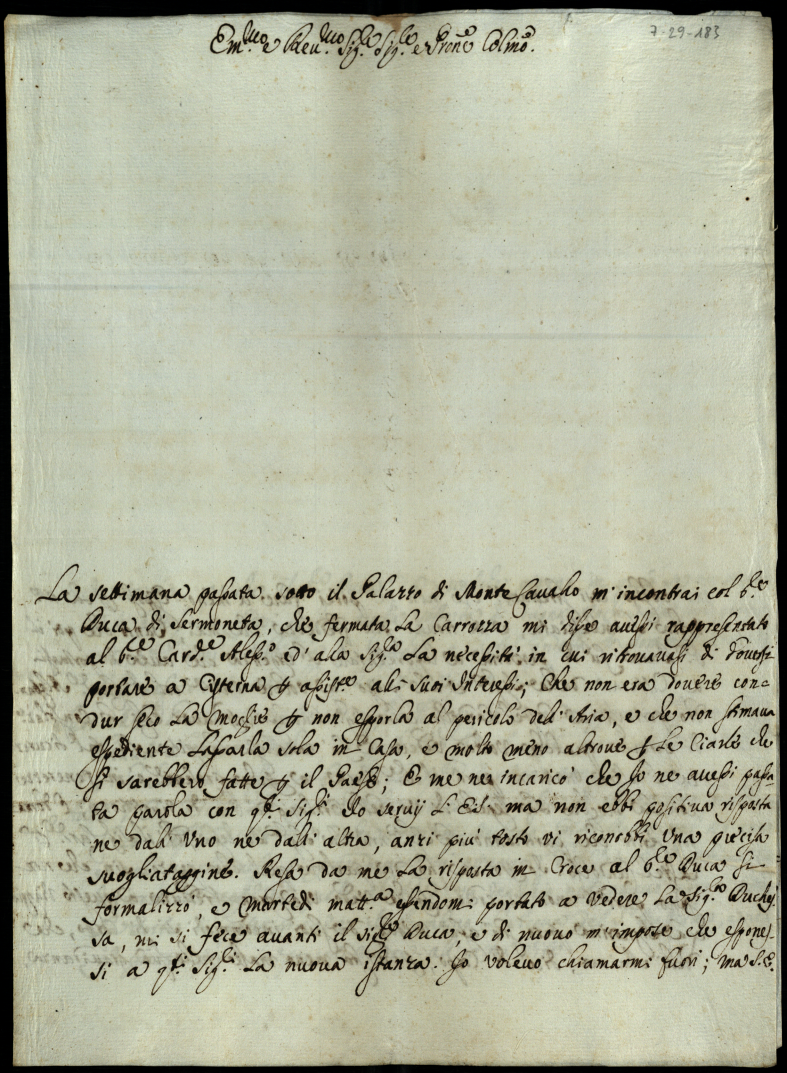 7-29-183
Em.mo e Reu.mo Sig.re Sig.re e Prone Colmo.
La settimana passata sotto il Palazzo di Monte Cauallo m'incontrai col S.r
Duca di Sermoneta, che fermata La Carrozza mi disse auessi rappresentato
al S.r Card.e Aless.o ed' alla Sig.ra La necessità in cui ritrouauasi di douersi
portare a Cisterna p assist.e alli suoi Interessi; Che non era douere con=
dur seco La Moglie p non esporla al pericolo dell'Aria, e che non stimaua
espediente Lasciarla sola in Casa, e molto meno altroue p Le Ciarle che
si sarebbero fatte p il Paese; E me ne incaricò che Io ne auessi passa-
ta parola con q.ti Sig.ri Io seruij S. E. ma non ebbi positiua risposta
ne dall' Uno ne dall' altra, anzi più tosto vi riconobbi Una precisa
suogliataggine. Resa da me La risposta in Croce al S.r Duca si
formalizzò, e Martedì matt.a essendomi portato a Vedere La Sig.ra Duches-
sa, mi si fece auanti il Sig.r Duca, e di nuouo m'impose che espones-
si a q.ti Sig.ri La nuoua istanza. Io voleuo chiamarmi fuori; ma S.E.